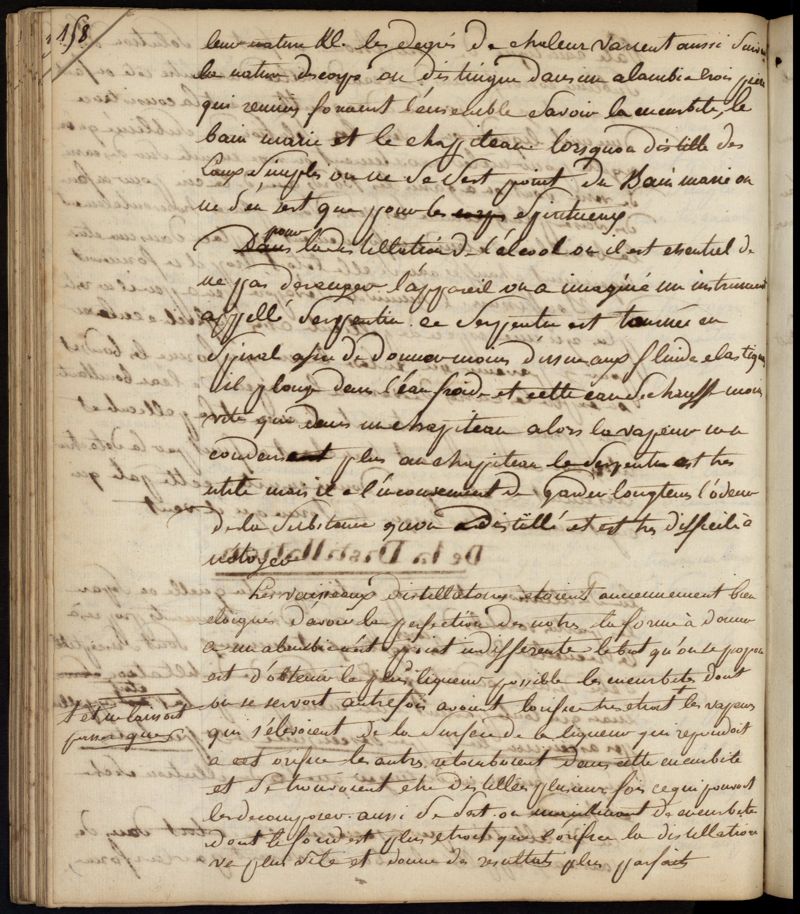 158
leur nature &c. les degrés de chaleur varient aussi suivant
la nature des corps on distingue dans un alambic trois pièces
qui reunis forment l'ensemble savoir la cucurbite, le
bain marie et le chapiteau lorsquon distille des
Eaux simples on ne se sert point du Bain marie on
ne s'en sert que pour les spiritueux
pour
la distillation de l'alcool ou il est essentiel de
ne pas deranger l'appareil on a imaginé un instrument
appellé serpentin. ce serpentin est tournée en
spiral afin de donner moins d'issue aux fluide elastiques
il plonge dans l'eau froide et cette eau s'échauffe moins
vite que dans un chapiteau alors la vapeur
plus au chapiteau le serpentin est tres
utile mais il a l'inconvenient de garder longtems l'odeur
de la substance qu'on a distillé et est tres difficile à
netoyer
Les vaisseaux distillatoires etoient anciennement bien
eloignés d'avoir la perfection des notres la forme à donner
a un alambic n'est point indifferente le but qu'on se propose
est d'obtenir le plus liqueur possible les cucurbites dont
on se servoit autrefois avoient l'orifice tres etroit les vapeurs
et ne laissoit
passer que
qui s'élevoient de la surface de la liqueur qui repondoit
a cet orifice les autres retomboient dans cette cucurbite
et se trouvoient etre distillées plusieurs fois ce qui pouvoit
les decomposer. aussi se sert on de cucurbite
dont le fond est plus etroit que l'orifice la distillation
va plus vite et donne des resultats plus parfaits